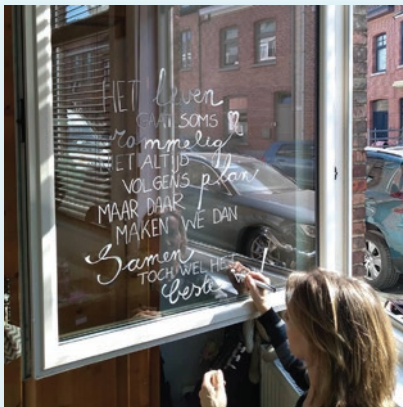 HET leven
GAAT SOMS
rommelig
NIET ALTIJD
VOLGENS plan
MAAR DAAR
MAKEN WE DAN
Samen
TOCH WEL HET
beste